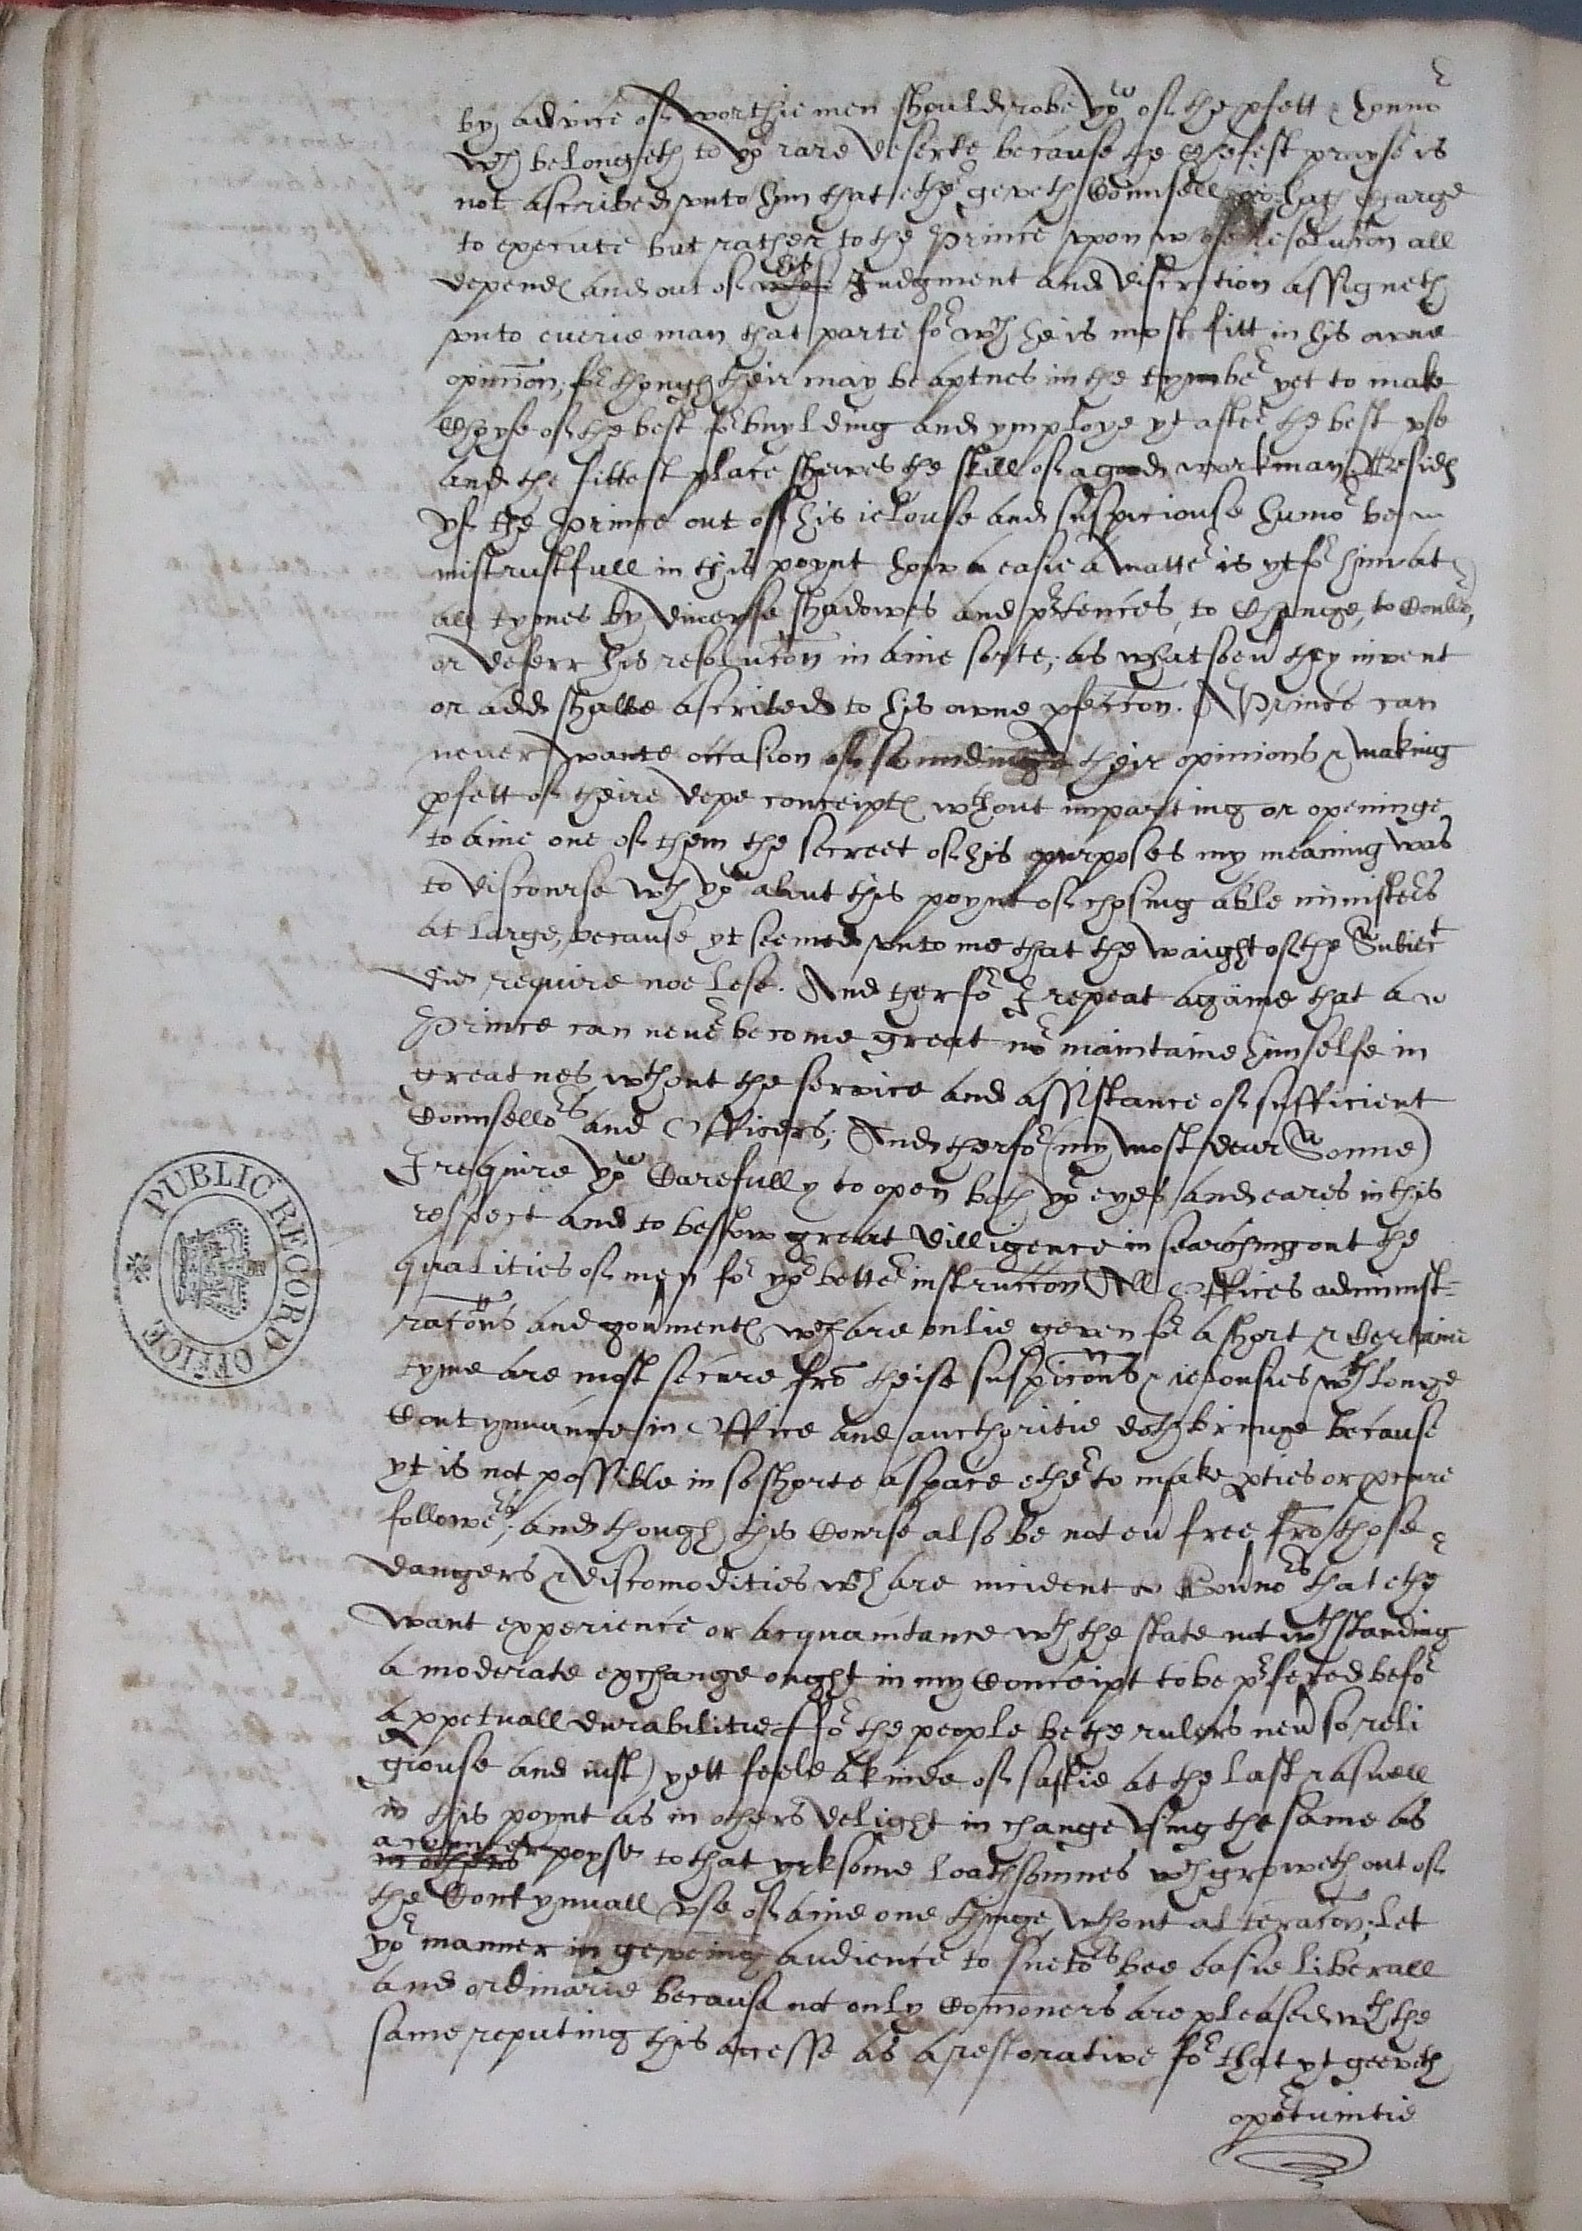 by advice of worthie men should robe yow of the pfett & honnor
wch belongeth to yor rare deserte because the chefest prayse is
not ascribed vnto him that ether geveth Counsell or hath charge
to execute but rather to the Prince vpon whose resolucon all
depends and out of his Judgment and discretion assigneth
vnto euerie man that parte for wch he is most fitt in his owne
opinion, for though their may be aptnes in the tymber yet to make
Choyse of the best for buylding and ymploye yt after the best vse
and the fittest place shewes the skill of a good workman, Besids
yf the Prince out of his ielouse and suspiciouse humor be
mistrustfull in this poynt how a easie a matter is yt for him at
all tymes by diuerse shadowes and prtences, to Change, to Couller,
or deferr his resolucon in anie sorte, as whatsoeu they invent
or add shalbe ascribed to his owne pfeccon. A Prince can
never wante occasion of soundinge their opinions & making
pfett of theire depe conceipts wthout imparting or openinge
to anie one of them the secreet of his purposes my meaning was
to discourse wth yow about this poynt of chosing able ministers
at large, because yt seemed vnto me that the waight of the Subiect
did require noe lese. And therfor I repeat againe that a
Prince can never become great nor maintaine himselfe in
greatnes wthout the service and assistance of sufficient
Counsellors and Officers; And therfor (my most dear Sonne)
I require yow Carefully to open both yor eyes and eares in this
respect and to bestow great dilligence in searching out the
qualities of men for yor better instruccon All Offices administ=
racons and gouments wch are onlie geven for a short & Certaine
tyme are most secure fro theise suspicons & ielousies wch longe
Contynuance in Office and aucthoritie doth bringe because
yt is not possible in so shorte a space ether to make pties or pcure
followers; and though this Course also be not eu free fro those
dangers & discomodities wch are incident to Gouнors that ether
want experience or acquaintance wth the state not wthstanding
a moderate exchange ought in my Conceipt to be prfered before
a ppetuall durabilitie ffor the people be the rulers neu so reli
giouse and iust) yett feele a kinde of satietie at the last & aswell
in this poynt as in others delight in change vsing the same as
in others a counterpoyse to that yrksome loathsomnes wch groweth out of
the Contynuall vse of anie one thinge wthout alteracon; let
yor manner in geveing audience to suetors bee easie liberall
and ordinarie because not only Comoners are pleased wth the
same reputing this accesse as a restorative for that yt geeveth
oportunitie
PUBLIC RECORD OFFICE